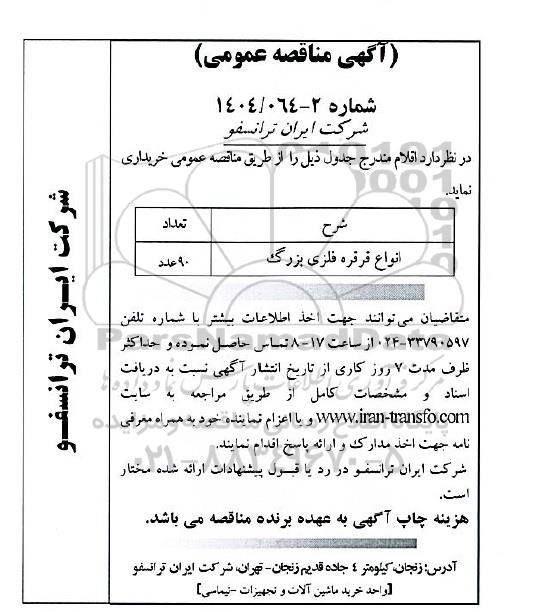 (آگهی مناقصه عمومی)
شماره ۲-۱۴۰۴/۰۶۴
شرکت ایران ترانسفو
در نظر دارد اقلام مندرج جدول ذیل را از طریق مناقصه عمومی خریداری
نماید.
شرح تعداد
انواع قرقره فلزی بزرگ ۹۰عدد
متقاضیان می توانند جهت اخذ اطلاعات بیشتر با شماره تلفن
۰۲۴-۳۳۷۹۰۵۹۷ از ساعت ۱۷-۸ تماس حاصل نموده و حداکثر
ظرف مدت ۷ روز کاری از تاریخ انتشار آگهی نسبت به دریافت
اسناد و مشخصات کامل از طریق مراجعه به سایت
www.iran-transfo.com و یا اعزام نماینده خود به همراه معرفی
نامه جهت اخذ مدارک و ارائه پاسخ اقدام نمایند.
شرکت ایران ترانسفو در رد یا قبول پیشنهادات ارائه شده مختار
است.
هزینه چاپ آگهی به عهده برنده مناقصه می باشد.
آدرس: زنجان، کیلومتر ٤ جاده قدیم زنجان- تهران، شرکت ایران ترانسفو
[واحد خرید ماشین آلات و تجهیزات -نیماسی]
شرکت ایران ترانسفو
ParsNamadData
۰۲۱-۸۸۳۴۹۶۷۰-۵